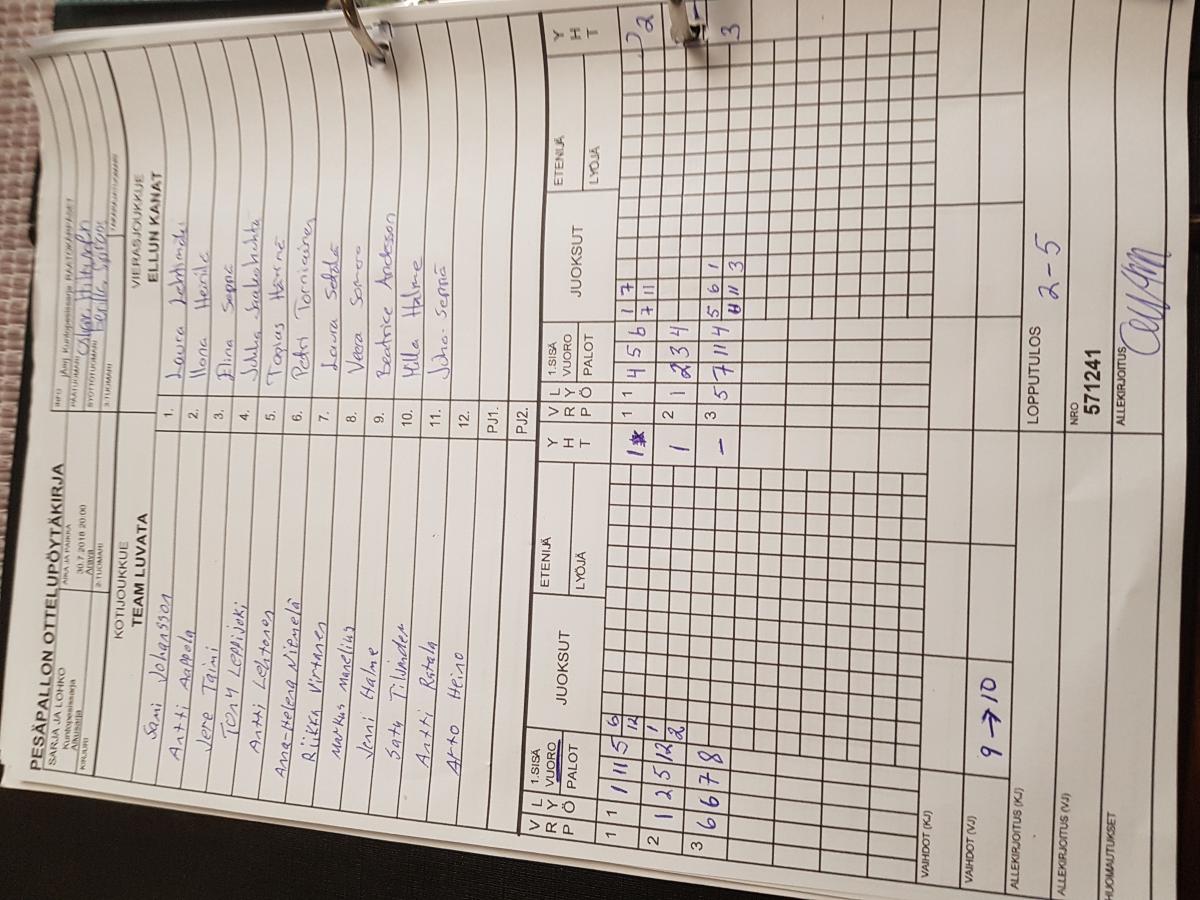 PESÄPALLON OTTELUPÖYTÄKIRJA
SARJA JA LOHKO
Kuntopesissarja
Alkusarja
AIKA JA PAIKKA
30.7.2018 20:00
INFO
PÄÄTUOMARI
SYÖTTÖTUOMARI
KIRJURI
2-TUOMARI
3-TUOMARI
KOTIJOUKKUE
TEAM LUVATA
VIERASJOUKKUE
ELLUN KANAT
Sami Johansson 1. Laura Lehtimäki
Antti Aappola 2. Ilona Heinilä
Jere Taimi 3. Elina Seppä
Tony Leppijoki 4.
Antti Lehtonen 5.
Anna-Helena Niemelä 6. Petri Torniainen
Riikka Virtanen 7. Laura
Markus Manelius 8. Veera Somero
Jenni Halme 9. Beatrice Andersson
Satu 10. Milla Halme
Antti Ratala 11. Juha
Arto Heino 12.
PJ1.
PJ2.
V R P L Y Ö 1.SISÄ VUORO PALOT JUOKSUT ETENIJÄ LYÖJÄ Y H T V R P L Y Ö 1.SISÄ VUORO PALOT JUOKSUT ETENIJÄ LYÖJÄ Y H T
1 1 1 11 5 6 12 1 1 1 4 5 6 1 7 7 11 2
2 1 2 5 12 1 2 1 2 1 2 3 4 -
3 6 6 7 8 - 3 5 7 11 4 5 6 1 11 3 3
VAIHDOT (KJ)
VAIHDOT (VJ) 9 → 10
ALLEKIRJOITUS (KJ) LOPPUTULOS 2-5
ALLEKIRJOITUS (VJ) NRO 571241
HUOMAUTUKSET ALLEKIRJOITUS